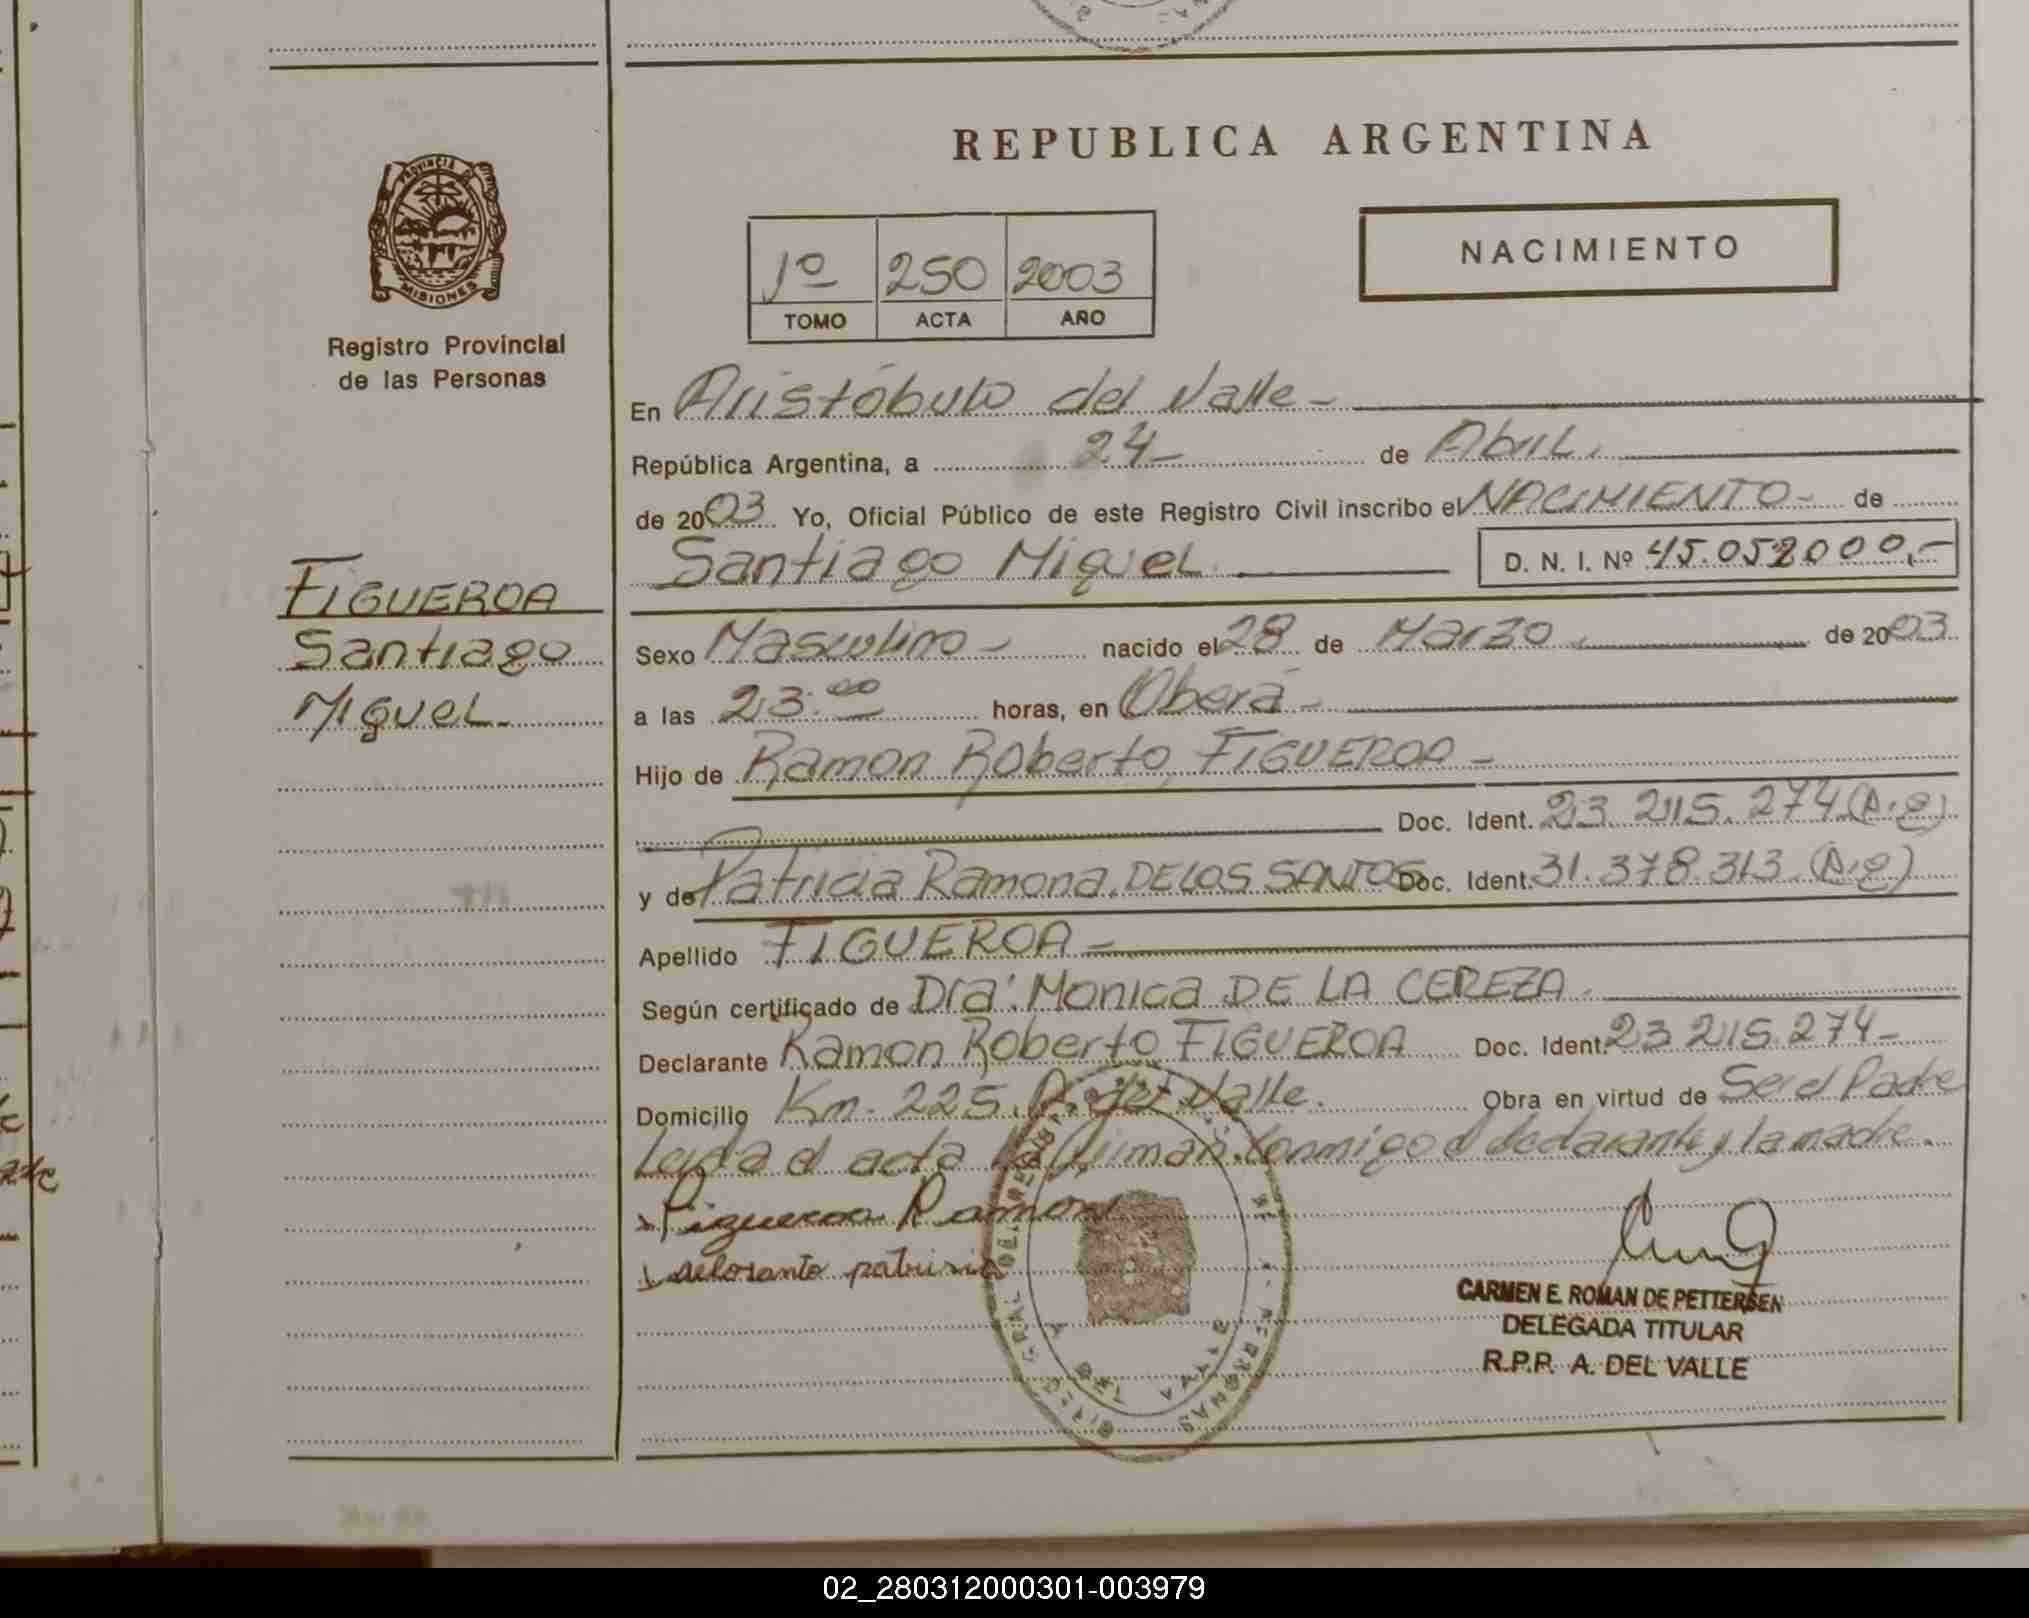 REPUBLICA ARGENTINA
PROVINCIA DE
MISIONES
Registro Provincial
de las Personas
1º 250 2003
TOMO ACTA AÑO
NACIMIENTO
En Aristóbulo del Valle -
República Argentina, a 24 - de Abril.
de 2003 Yo, Oficial Público de este Registro Civil inscribo el NACIMIENTO - de
Santiago Miguel D. N. I. Nº 45.052000.-
FIGUEROA
Santiago
Miguel.
Sexo Masculino - nacido el 28 de Marzo. de 2003
a las 23:00 horas, en Oberá -
Hijo de Ramon Roberto FIGUEROA -
Doc. Ident. 23.215.274 (A.g)
y de Patricia Ramona DE LOS SANTOS Doc. Ident. 31.378.313. (A.g)
Apellido FIGUEROA -
Según certificado de Dra: Monica DE LA CEREZA.
Declarante Ramon Roberto FIGUEROA Doc. Ident. 23 215.274 -
Domicilio Km. 225. A. del Valle. Obra en virtud de Ser el Padre
Leyda el acta la firman conmigo el declarante y la madre.
Figueroa Ramon
delosanto patricia
CARMEN E. ROMAN DE PETTERSEN
DELEGADA TITULAR
R.P.P. A. DEL VALLE
02_280312000301-003979